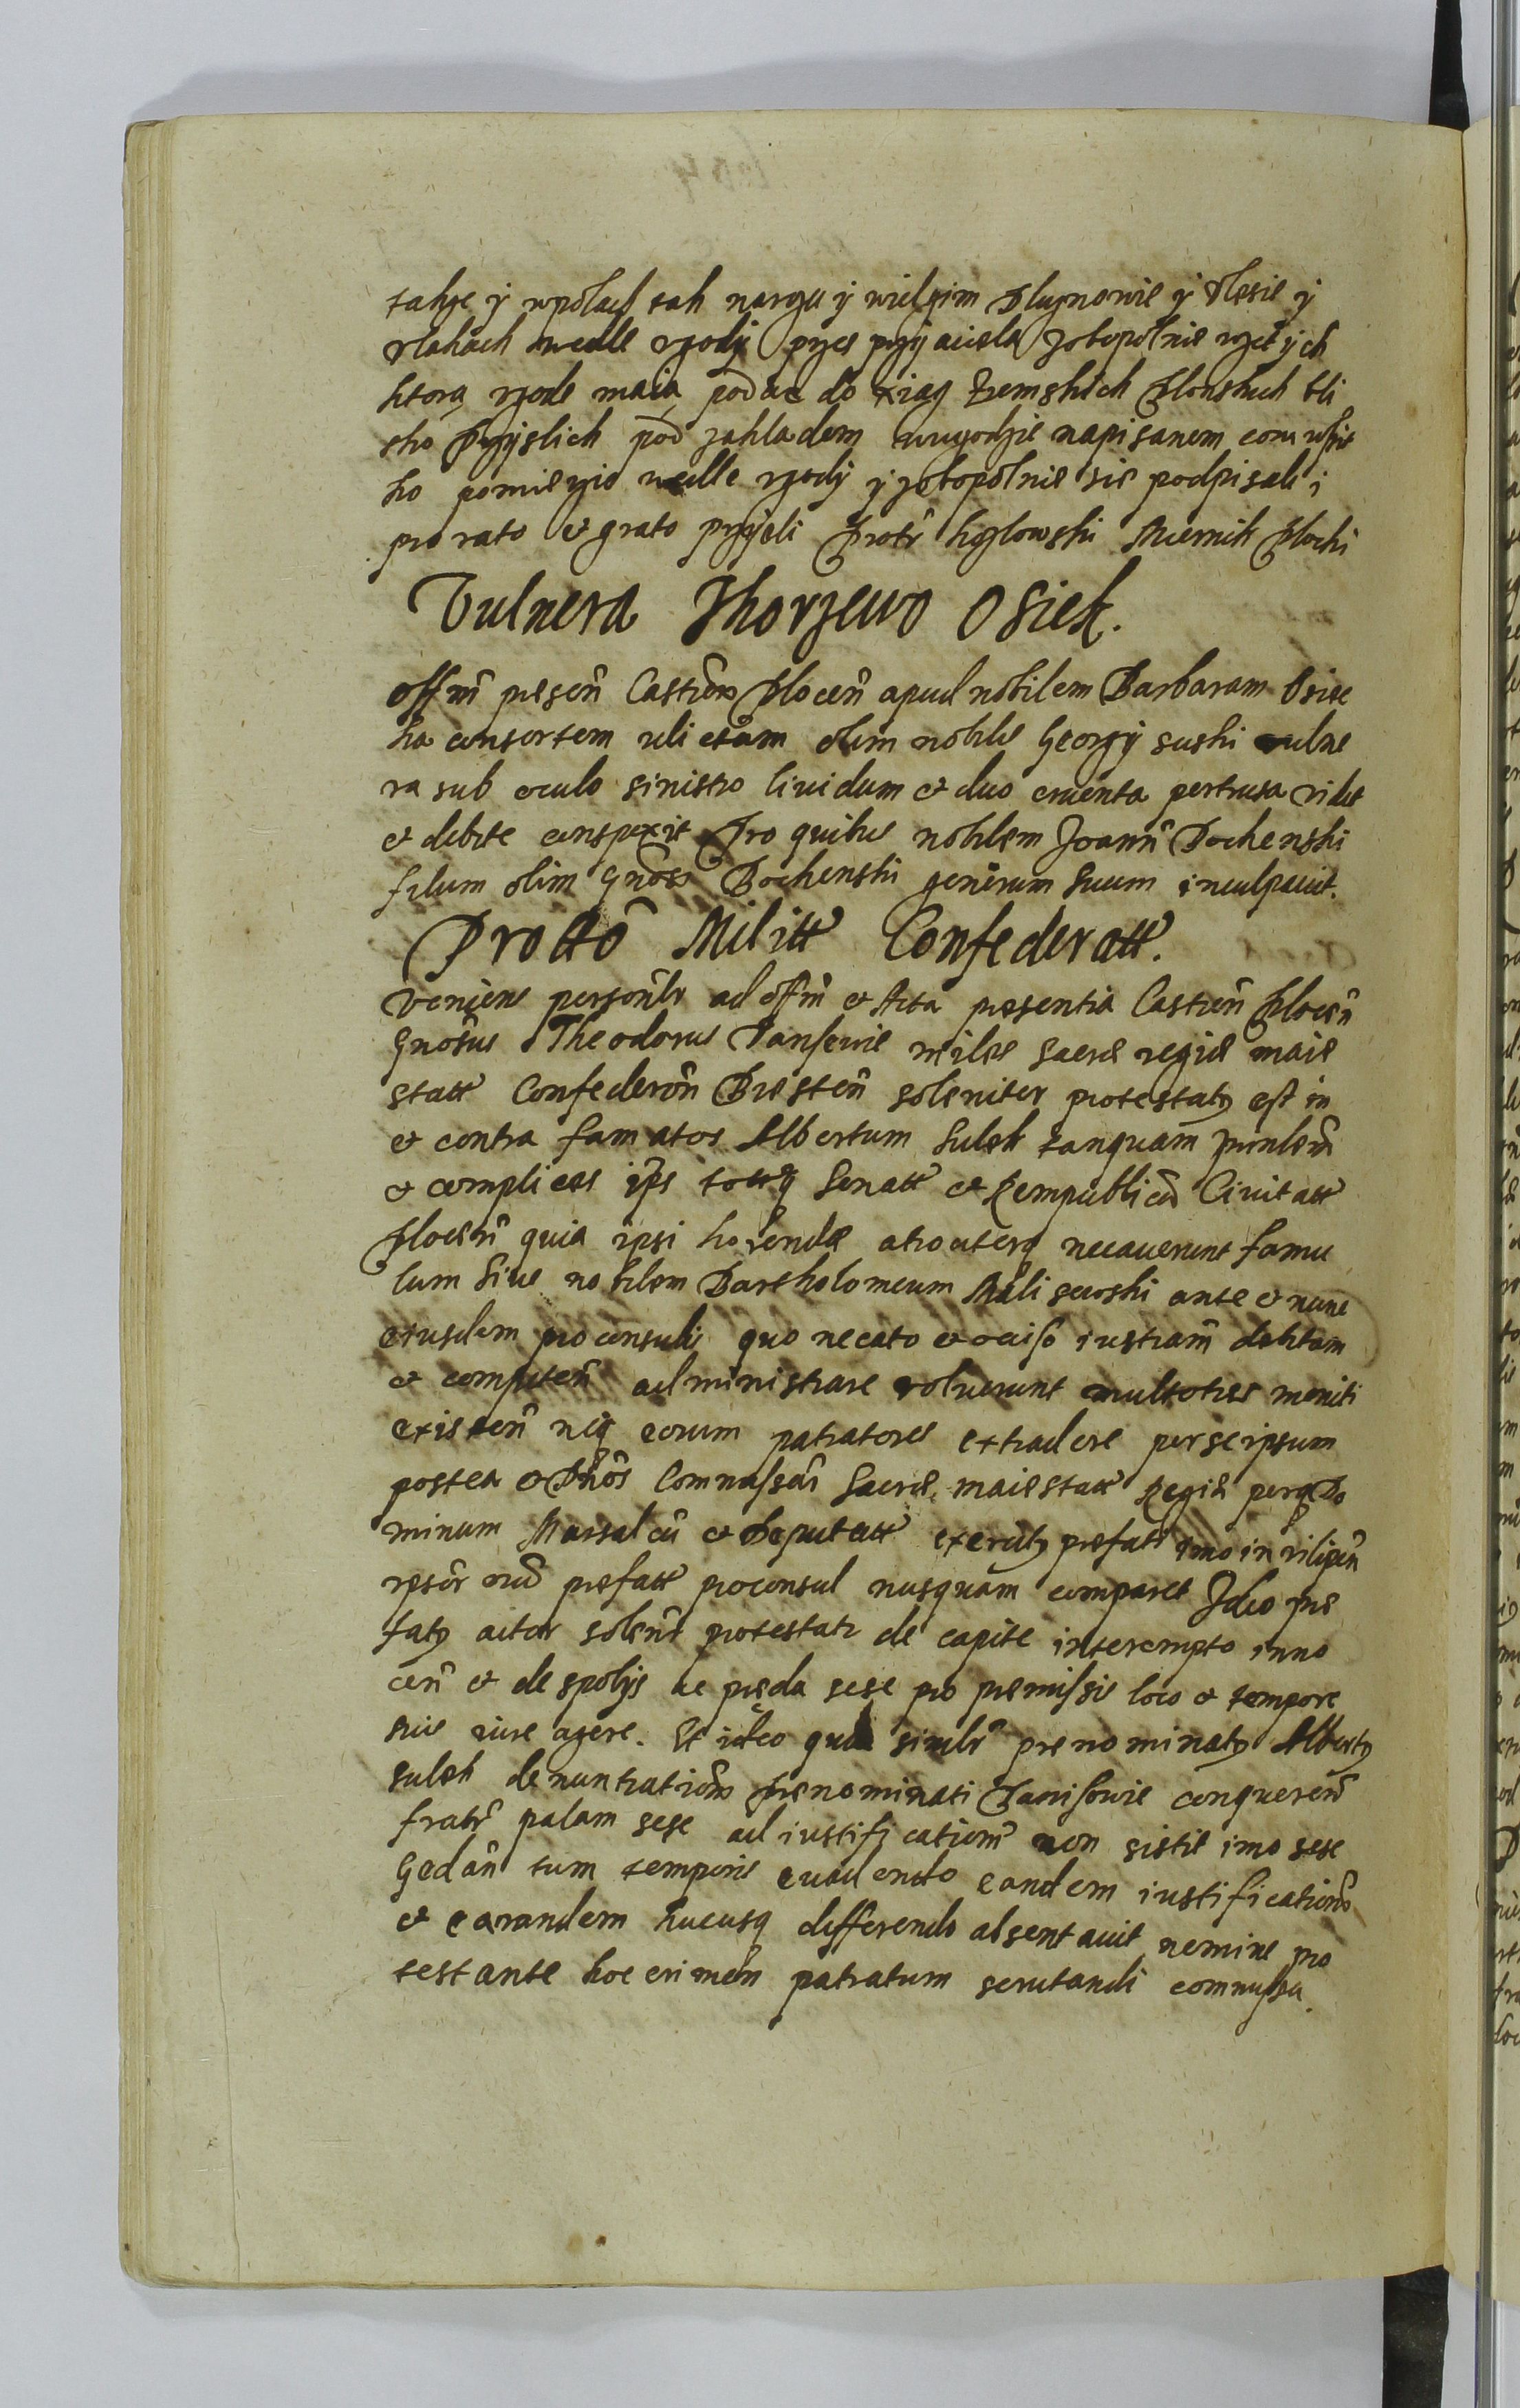 takze y wpolach tak nargu y wielgim Pluznowie y Vlesie y
vlakach wedle vgody przes przyiaciela zobopolnie vzetych
ktorą vgode maią podac do xiag Zemskich Plonskich bli
sko Przyslich pod zakladem wugodzie napisanem com wszit
ko pomienyio wedle vgody y zobopolnie sie podpisali i
pro rato et grato przyjeli Piotr Kozlowski Miernik Plocki
Vulnera Skorzewo Osiek.
Offm presen Castren Plocen apud nobilem Barbaram Osiec
ka consortem relictam olim nobilis Georgy suski vulne
ra sub oculo sinistro lividum et duo cruenta pertusa vidit
et debite conspexit Pro quibus nobilem Joann Bochenski
filium olim Gnosi Bochenski generum suum inculpavit.
Prottō Militt Confederatt.
Veniens personlr ad offm et Acta presentia Castren Plocen
Gnosus Theodorus miles Sacre regie maie
statt Confederon Bresten soleniter protestatus est in
et contra famatos Albertum Sulek tanquam prinlem
et complices ips totq Senatt et Rempublicā Civitatt
Plocen quia ipsi horende atrociterq necaverunt famu
lum sive nobilem Bartholomeum ante et nunc
eiusdem proconsuli quo necato et occiso iustiam debitam
et competen administrare noluerunt multoties moniti
existen neq eorum patratores extradere per seipsum
postea et Dnos Commissari Sacre maiestatt Regie perq Do
minum Marsalcū et Deputatt exercitus prefati imo in vilipen
resor eiū prefatt proconsul nusquam comparet Ideo pre
fatus actor solenr protestatr de capite interempto inno
cen et de spolys ac preda sese pro premissis loco et tempore
suis iure agere. Et ideo quia similr prenominatus Albertus
sulek denuntiationi prenominati conqueren
fratr palam sese ad iustificationem non sistit imo sese
Gedan tum temporis evadendo eandem iustificationem
et earandem hucusq differendo absentavit nemine pro
testante hoc crimen patratum scrutandi commissa.